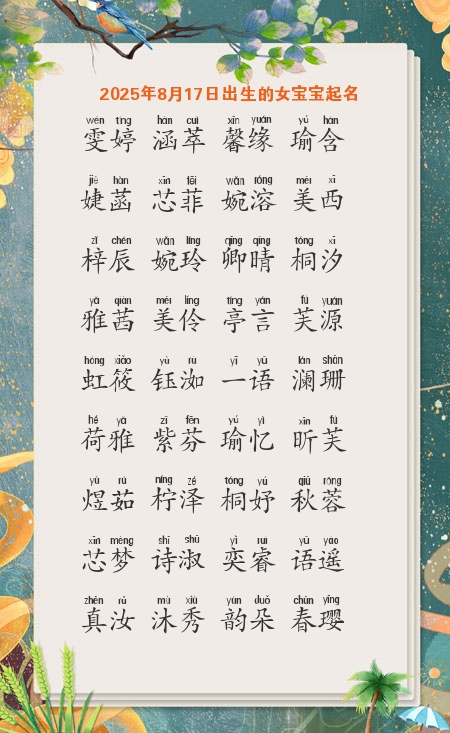 2025年8月17日出生的女宝宝起名
wén tíng hán cuì xīn yuán yú hán
雯婷 涵萃 馨缘 瑜含
jié hàn xīn fēi wǎn róng měi xī
婕菡 芯菲 婉溶 美西
zǐ chén wǎn líng qīng qíng tóng xī
梓辰 婉玲 卿晴 桐汐
yǎ qiàn měi líng tíng yán fú yuán
雅茜 美伶 亭言 芙源
hóng xiǎo yù rú yī yǔ lán shān
虹筱 钰洳 一语 澜珊
hé yǎ zǐ fēn yú yì xīn fú
荷雅 紫芬 瑜忆 昕芙
yù rú níng zé tóng yú qiū róng
煜茹 柠泽 桐妤 秋蓉
xīn mèng shī shū yì ruì yǔ yáo
芯梦 诗淑 奕睿 语遥
zhēn rǔ mù xiù yùn duǒ chūn yīng
真汝 沐秀 韵朵 春璎